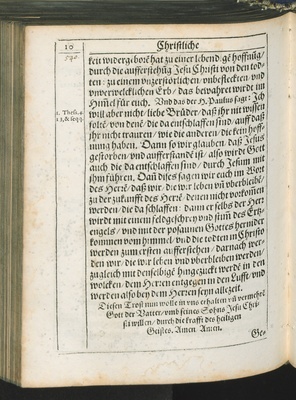 10
Christliche
540.
keit widergeboret hat zu einer lebendigē hoffnūg/
durch die aufferstehūg Jesu Christi von den tod-
ten/ zu einem vnzerstörlichen/ vnbefleckten/ vnd
vnverwelcklichen Erb/ das bewahret wirdt im
Himel für euch. Vnd das der H. Paulus sagt: Ich
1. Thess. 4.
will aber nicht/ liebe Brüder/ daß ihr nit wissen
sollet/ von denē/ die da entschlaffen sind/ auff daß
ihr nicht trauret/ wie die anderen/ die kein hoff-
nung haben. Dann so wir glauben/ daß Jesus
gestorben/ vnd aufferstandē ist/ also wirdt Gott
auch die da entschlaffen sind/ durch Jesum mit
ihm führen. Dañ dises sagen wir euch im Wort
des Herrē/ daß wir/ die wir leben vñ vberbleibē/
zu der zukunfft des Herrē/ denen nicht vorkomen
werden/ die da schlaffen: dann er selbs der Herr
wirdt mit einem feldgeschrey vnd stiñ des Ertz-
engels/ vnd mit der posaunen Gottes hernider
kommen vom himmel/ vnd die todten in Christo
werden zum ersten aufferstehen/ darnach wer-
den wir/ die wir leben vnd vberbleiben werden/
zugleich mit denselbigē hingezuckt werdē in den
wolcken/ dem Herren entgegen in den Lufft/ vnd
werden also bey dem Herren seyn allezeit.
Diesen Trost nun wolle in vns erhalten vñ vermehrē
Gott der Vatter/ vmb seines Sohns Jesu Chri-
sti willen/ durch die krafft des heiligen
Geistes. Amen. Amen.
Ge-